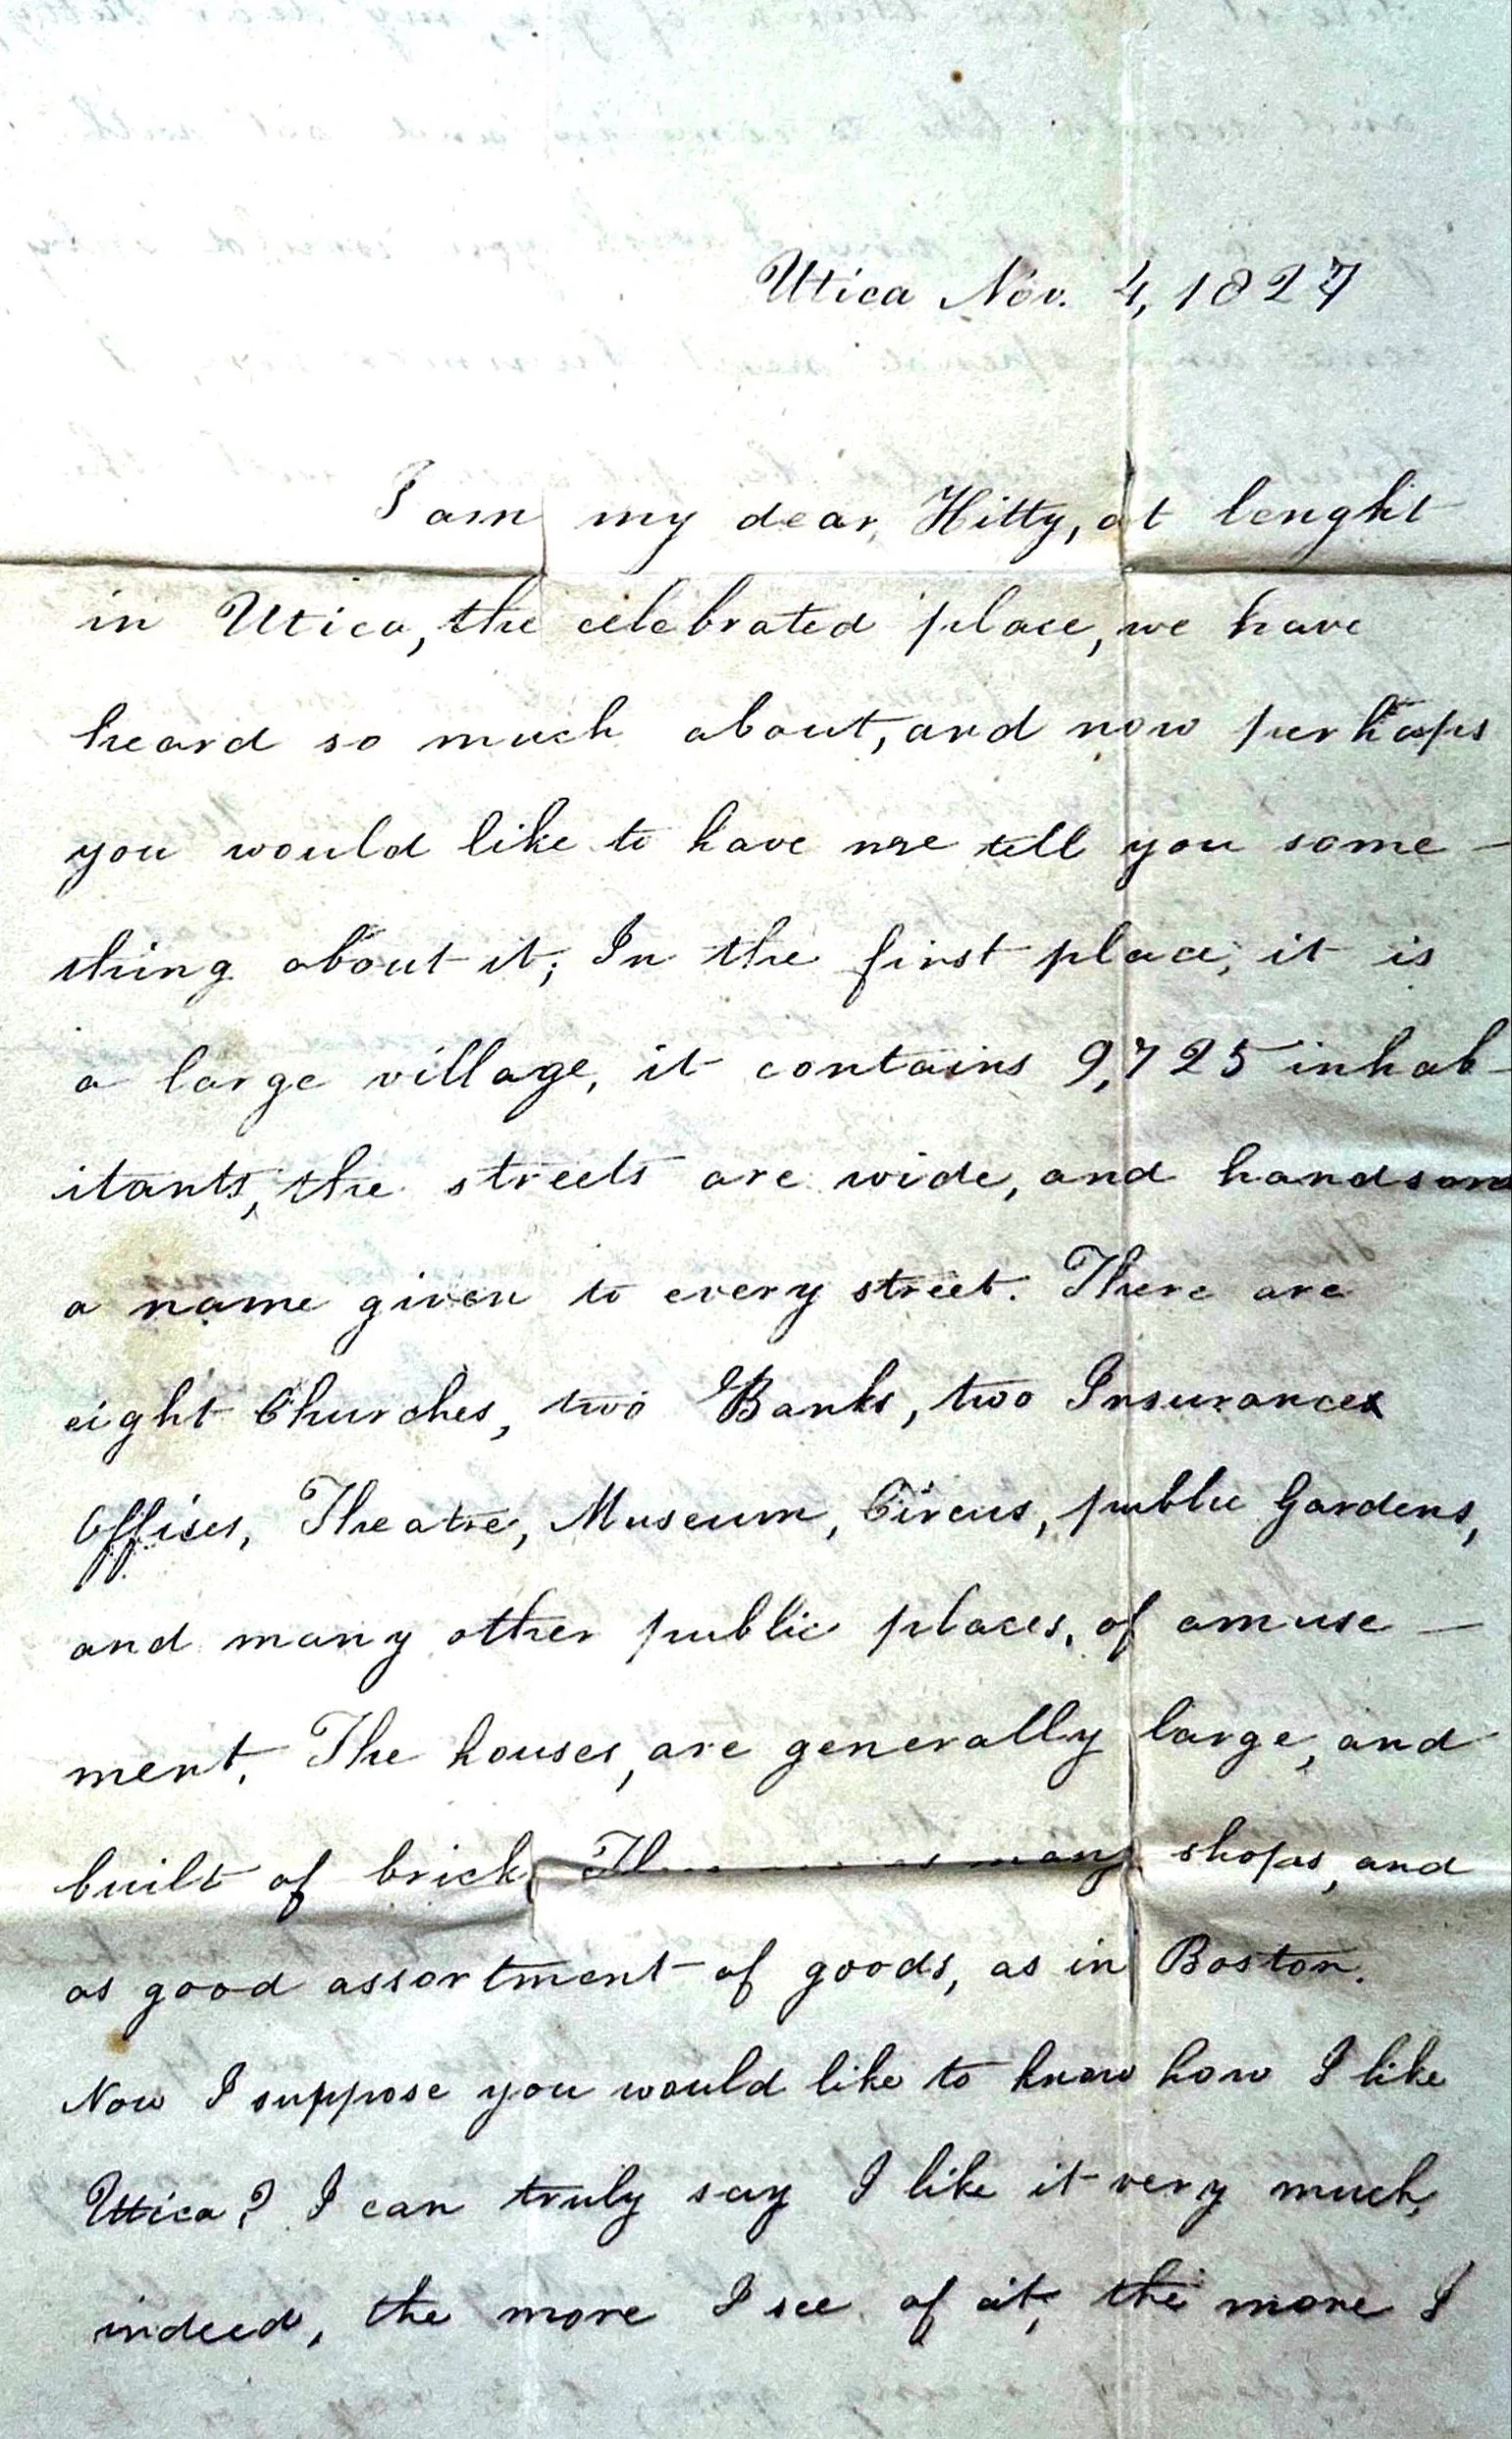 Utica Nov. 4, 1827
I am my dear, Hitty, at lenght
in Utica, the celebrated place, we have
heard so much about, and now perhaps
you would like to have me tell you some -
thing about it; In the first place, it is
a large village, it contains 9,725 inhab -
itants, the streets are wide, and handsom
a name given to every street. There are
eight Churches, two Banks, two Insurances
Offises, Theatre, Museum, Circus, public Gardens,
and many other public places, of amuse -
ment. The houses, are generally large, and
built of brick, as many shops, and
as good assortment of goods, as in Boston.
Now I suppose you would like to know how I like
Utica? I can truly say I like it very much,
indeed, the more I see of it, the more I